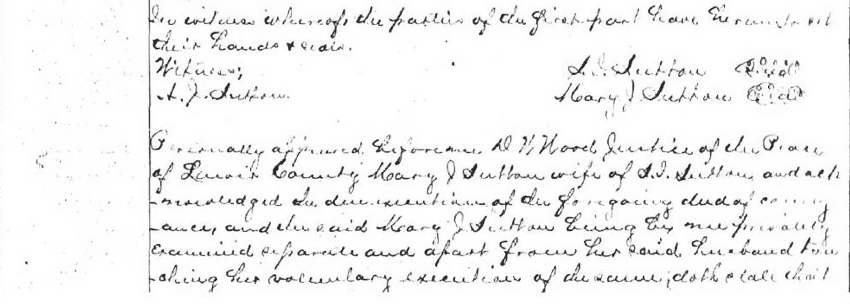 In witness whereof the parties of the first part have hereunto set
their hands & seals.
Witness; S. I. Sutton Seal
A. J. Sutton. Mary J Sutton Seal
Personally appeared before me D W Wood Justice of the Peace
of Lenoir County Mary J Sutton wife of S. I. Sutton, and ack
-nowledged the due execution of the foregoing deed of convey
-ance, and the said Mary J Sutton being by me privately
examined separate and apart from her said husband tou
-ching her voluntary execution of the same, doth state that